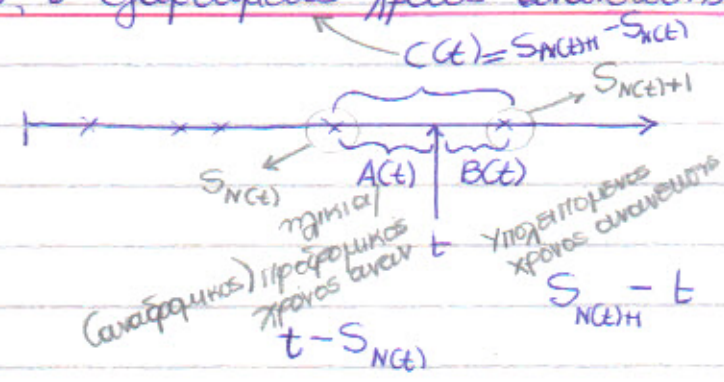 C(t) = S_{N(t)+1} - S_{N(t)}
S_{N(t)+1}
S_{N(t)}
A(t) B(t)
t
ηλικία/
(αναδρομικός) προδρομικος
χρόνος αναν
υπολειπόμενος
χρόνος ανανέωσης
t - S_{N(t)}
S_{N(t)+1} - t